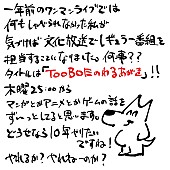 一年前のワンマンライブでは
何もしゃべらなかった私が
気づけば文化放送でレギュラー番組を
担当することになりました。何事??
タイトルは「TooBOEのわるあがき」!!
木曜25:00から
マンガとかアニメとかゲームの話を
ずーっとしてると思います。
どうせなら10年やりたい
ですね!
やれるか?やれねーのか?